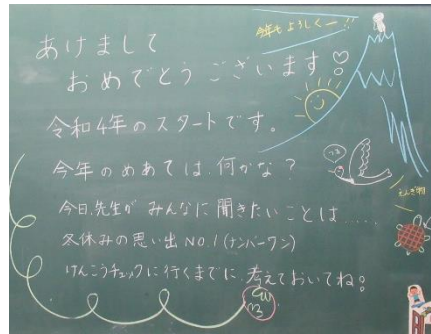 今年もよろしくー!!
あけまして
おめでとうございます
令和4年のスタートです。
今年のめあては、何かな?
今日、先生が みんなに 聞きたいことは.....
冬休みの思い出NO.1(ナンバーワン)
けんこうチェックに行くまでに、考えておいてね!